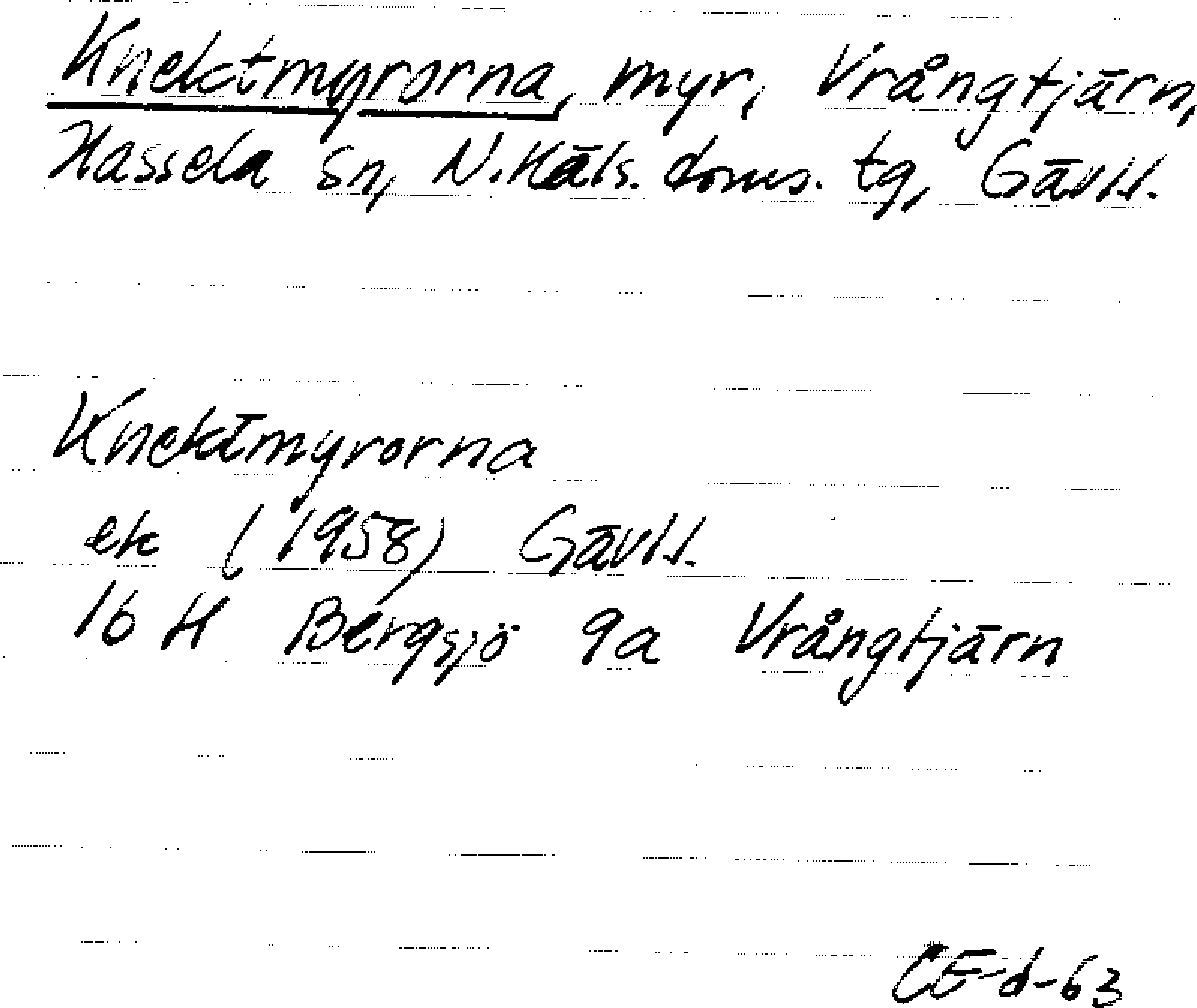 Knektmyrorna, myr, Vrångtjärn,
Hassela sn, N.Häls. doms. tg, Gävll.
Knektmyrorna
ek (1958) Gävll.
16 H Bergsjö 9a Vrångtjärn
CE-d-63